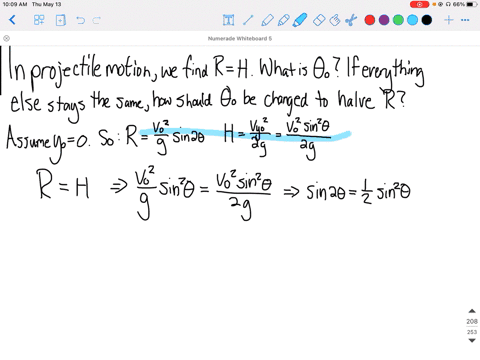 10:09 AM Thu May 13
66%
Numerade Whiteboard 5
In projectile motion, we find R=H. What is θ₀? If everything
else stays the same, how should θ₀ be changed to halve R?
Assume y₀=0. So: R = V₀²/g sin2θ H = Vy₀²/2g = V₀² sin²θ/2g
R = H ⇒ V₀²/g sin²θ = V₀² sin²θ/2g ⇒ sin2θ = 1/2 sin²θ
208
253